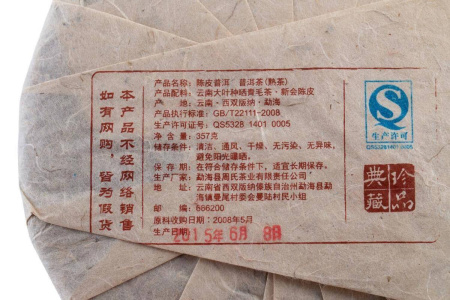 本产品不经网络销售
如有网购，皆为假货
产品名称：陈皮普洱　普洱茶(熟茶)
产品配料：云南大叶种晒青毛茶·新会陈皮
产　　地：云南·西双版纳·勐海
产品执行标准：GB/T22111-2008
生产许可证号：QS5328 1401 0005
净 含 量：357克
储存条件：清洁、通风、干燥、无污染、无异味，
避免阳光曝晒。
保 存 期：在符合储存条件下，适宜长期保存。
生产厂家：勐海县周氏茶业有限责任公司
地　　址：云南省西双版纳傣族自治州勐海县勐
海镇曼尾村委会曼贴村民小组
邮　　编：666200
原料收购日期：2008年5月
生产日期：
2015年6月 8日
生产许可
QS5328 1401 0005
珍品
典藏